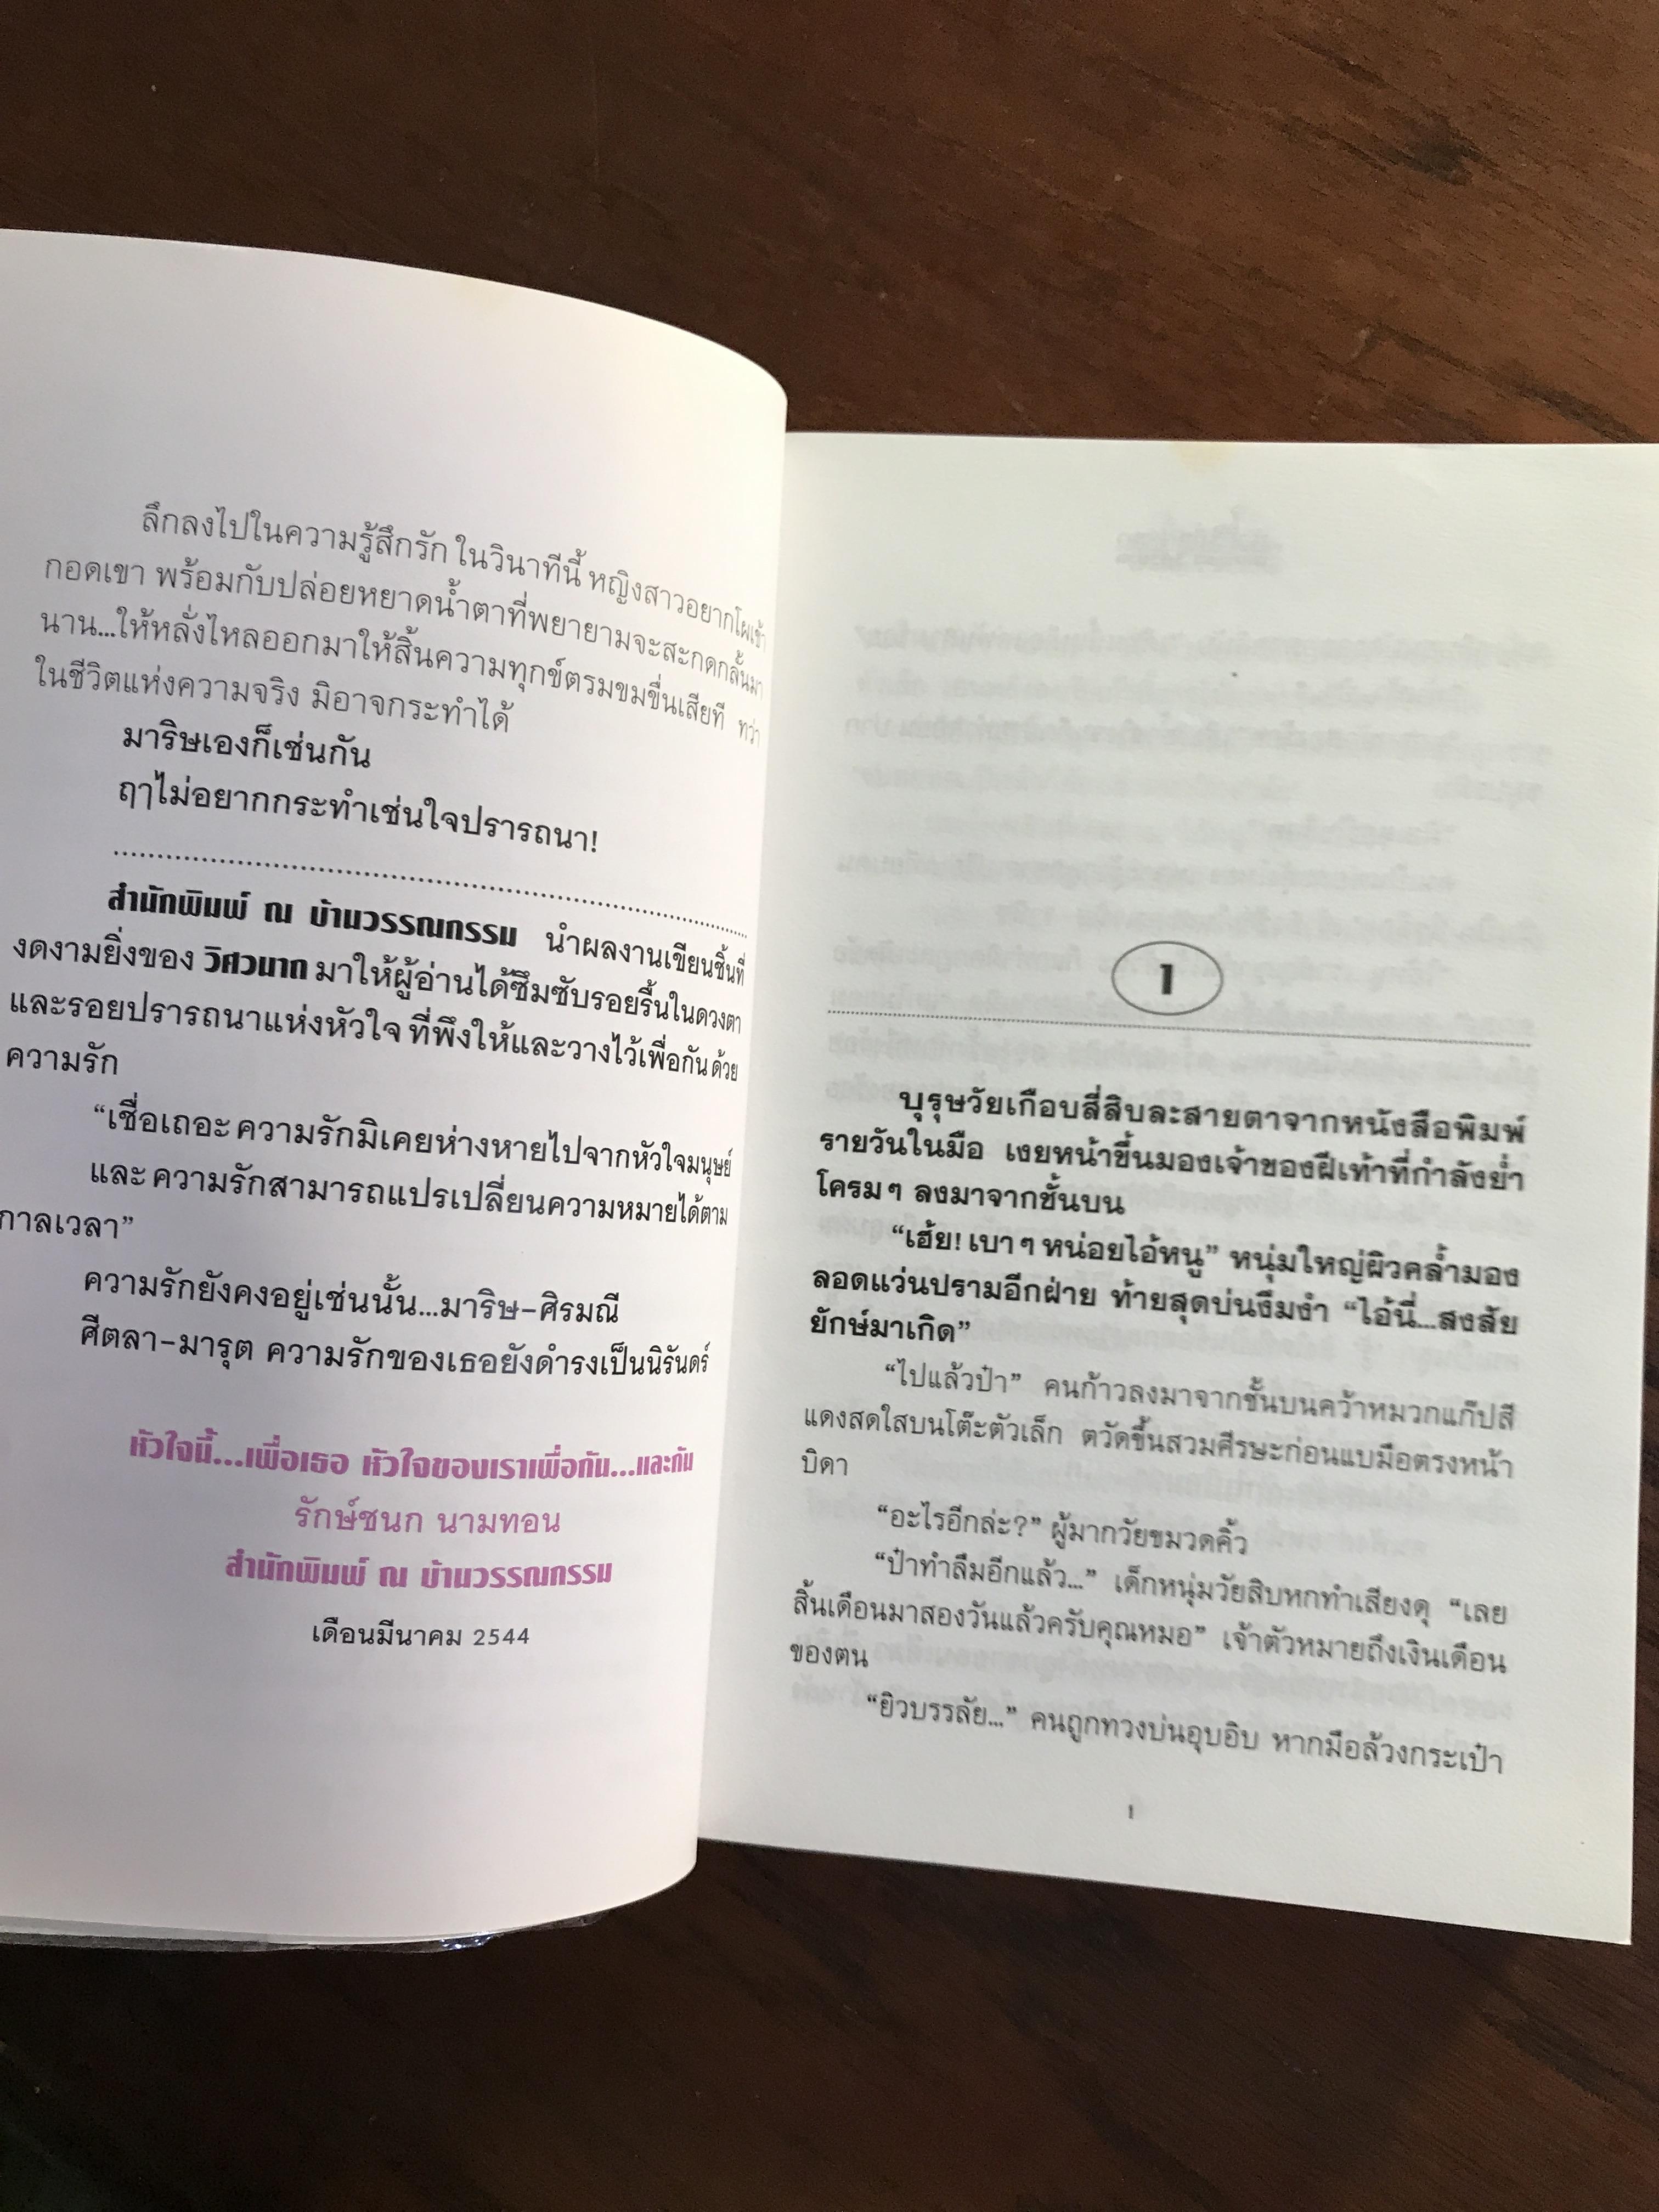 ลึกลงไปในความรู้สึกรัก ในวินาทีนี้ หญิงสาวอยากโผเข้า
กอดเขา พร้อมกับปล่อยหยาดน้ำตาที่พยายามจะสะกดกลั้นมา
นาน...ให้หลั่งไหลออกมาให้สิ้นความทุกข์ตรมขมขื่นเสียที ทว่า
ในชีวิตแห่งความจริง มิอาจกระทำได้
มาริษเองก็เช่นกัน
ฤๅไม่อยากกระทำเช่นใจปรารถนา!
สำนักพิมพ์ ณ บ้านวรรณกรรม นำผลงานเขียนชิ้นที่
งดงามยิ่งของ วิศวนาถ มาให้ผู้อ่านได้ซึมซับรอยรื้นในดวงตา
และรอยปรารถนาแห่งหัวใจ ที่พึงให้และวางไว้เพื่อกัน ด้วย
ความรัก
“เชื่อเถอะ ความรักมิเคยห่างหายไปจากหัวใจมนุษย์
และ ความรักสามารถแปรเปลี่ยนความหมายได้ตาม
กาลเวลา”
ความรักยังคงอยู่เช่นนั้น...มาริษ-ศิรมณี
ศีตลา-มารุต ความรักของเธอยังดำรงเป็นนิรันดร์
หัวใจนี้...เพื่อเธอ หัวใจของเราเพื่อกัน...และกัน
รักษ์ชนก นามทอน
สำนักพิมพ์ ณ บ้านวรรณกรรม
เดือนมีนาคม 2544
1
บุรุษวัยเกือบสี่สิบละสายตาจากหนังสือพิมพ์
รายวันในมือ เงยหน้าขึ้นมองเจ้าของฝีเท้าที่กำลังย่ำ
โครมๆ ลงมาจากชั้นบน
“เฮ้ย! เบาๆ หน่อยไอ้หนู” หนุ่มใหญ่ผิวคล้ำมอง
ลอดแว่นปรามอีกฝ่าย ท้ายสุดบ่นงึมงำ “ไอ้นี่...สงสัย
ยักษ์มาเกิด”
“ไปแล้วป๋า” คนก้าวลงมาจากชั้นบนคว้าหมวกแก๊ปสี
แดงสดใสบนโต๊ะตัวเล็ก ตวัดขึ้นสวมศีรษะก่อนแบมือตรงหน้า
บิดา
“อะไรอีกล่ะ?” ผู้มากวัยขมวดคิ้ว
“ป๋าทำลืมอีกแล้ว...” เด็กหนุ่มวัยสิบหกทำเสียงดุ “เลย
สิ้นเดือนมาสองวันแล้วครับคุณหมอ” เจ้าตัวหมายถึงเงินเดือน
ของตน
“ยิวบรรลัย...” คนถูกทวงบ่นอุบอิบ หากมือล้วงกระเป๋า
1